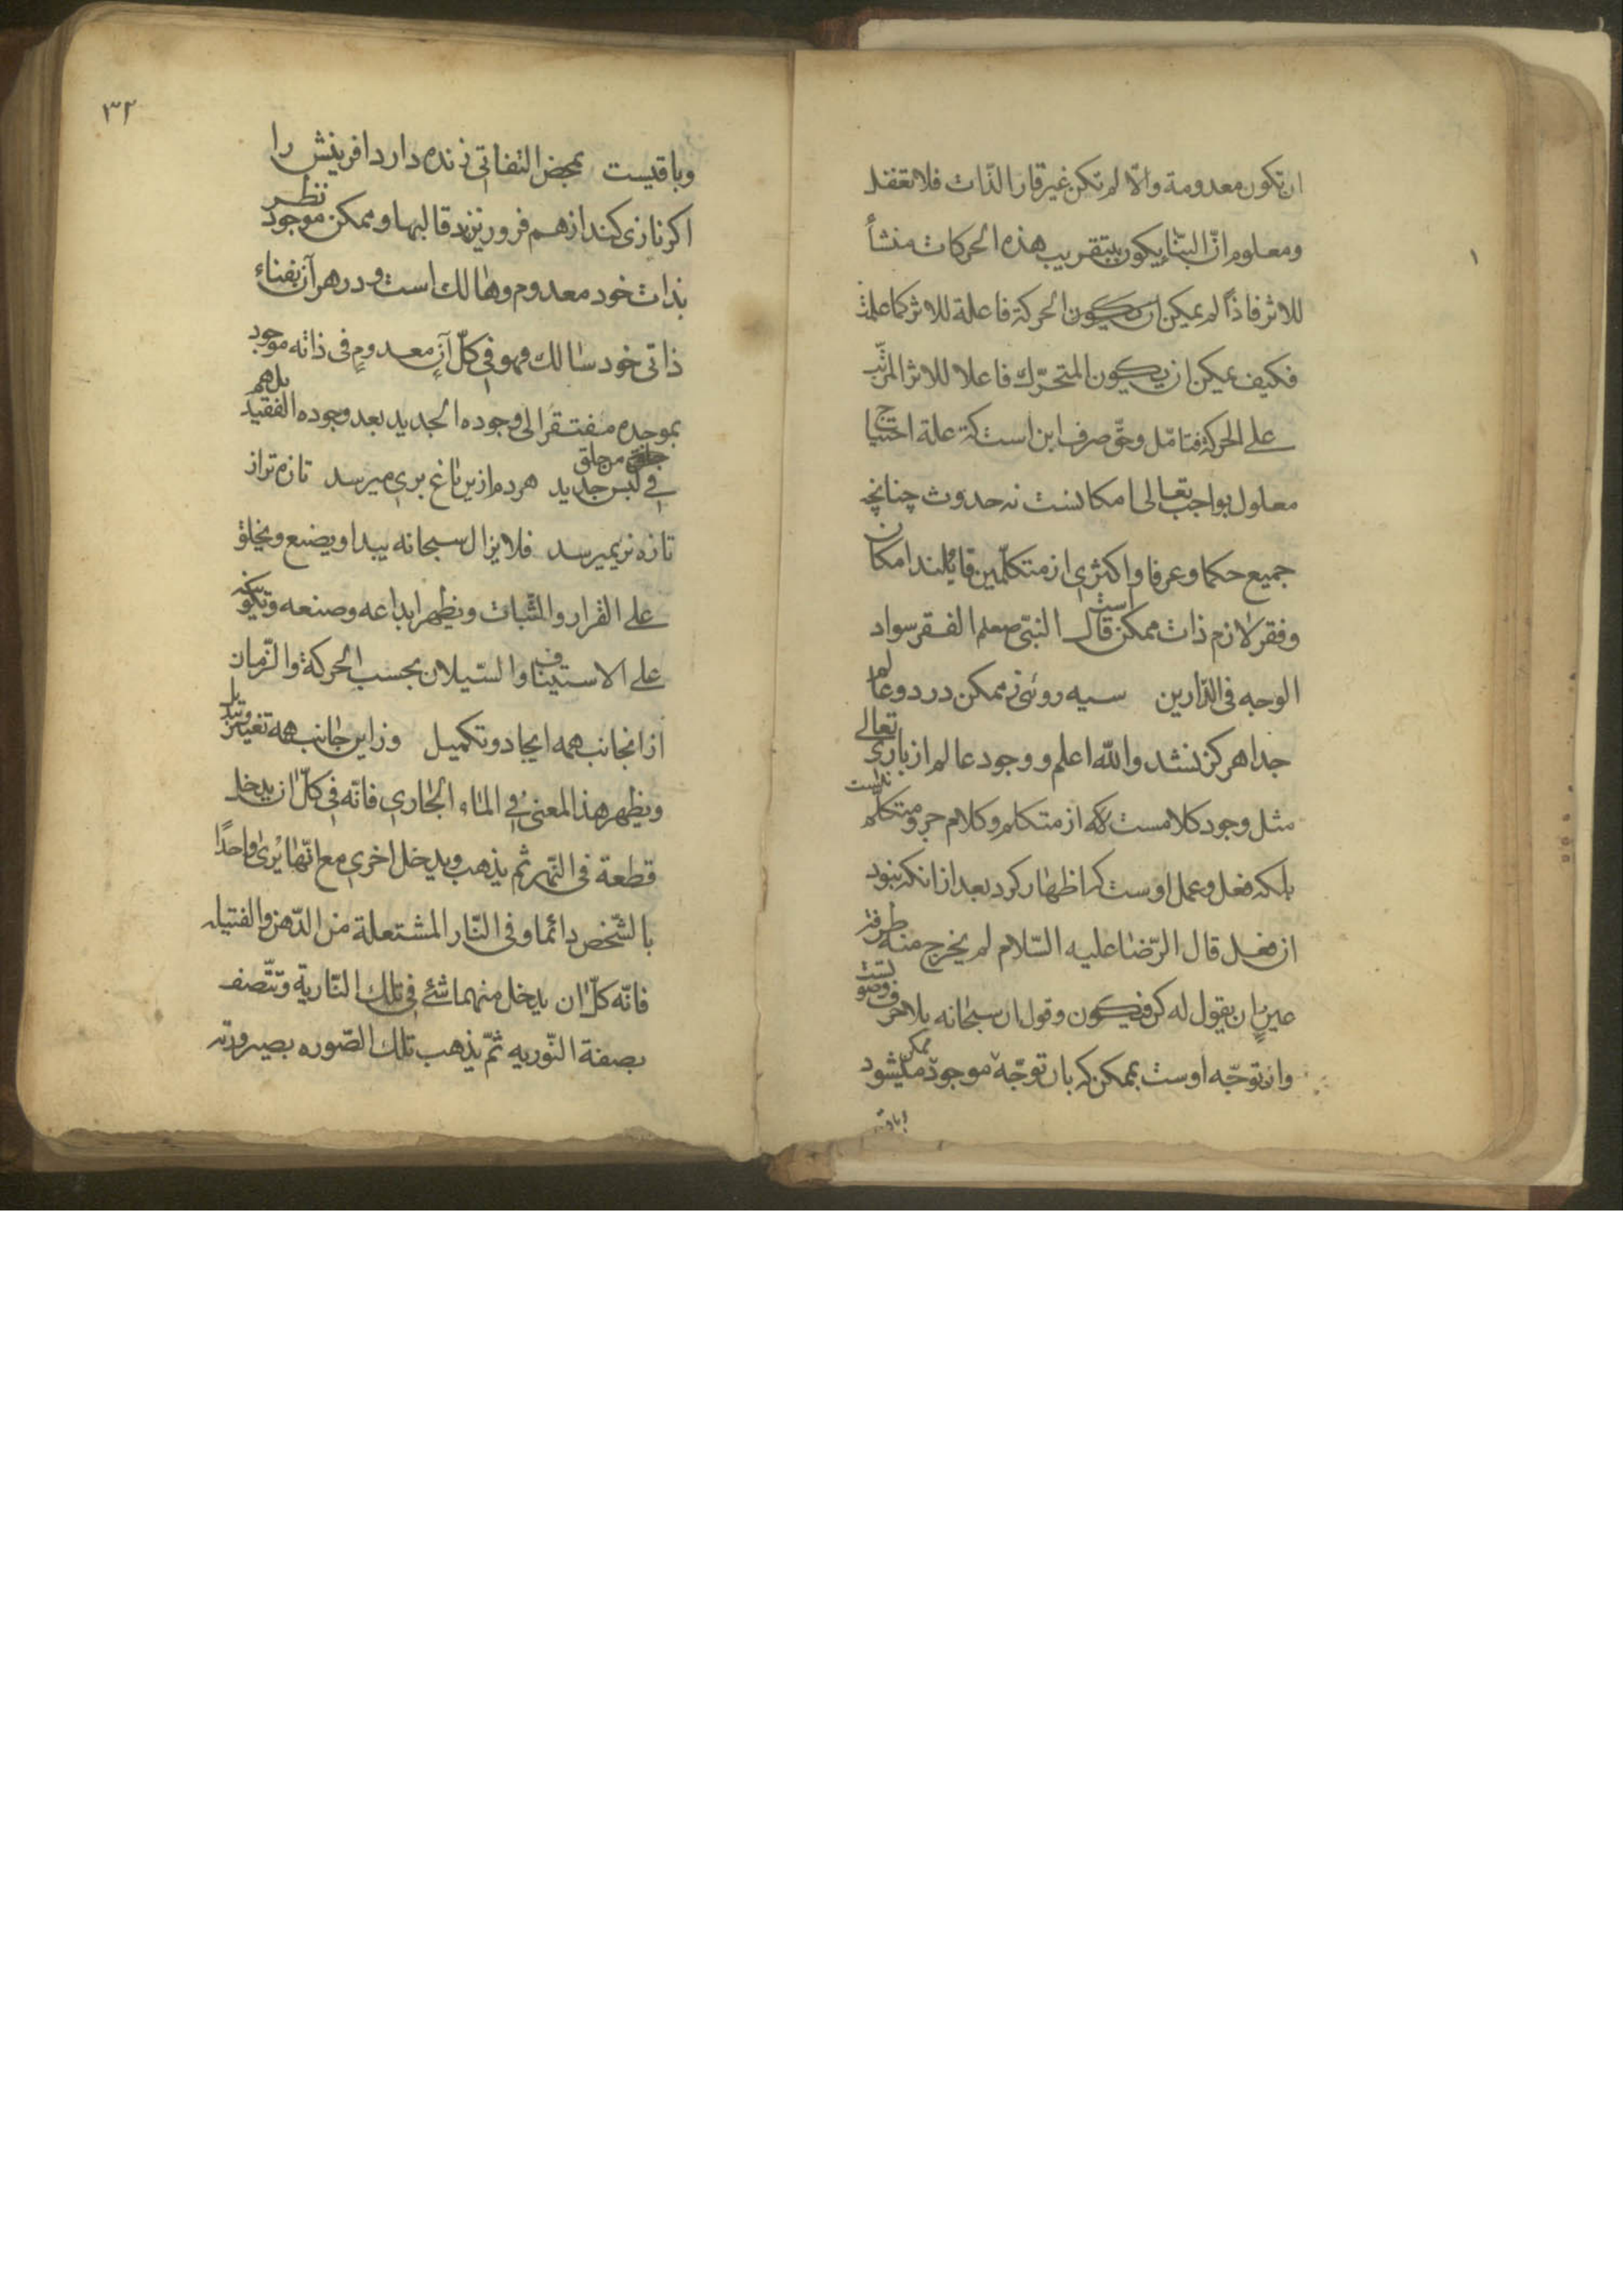 ان تکون معدومة والّا لم تکن غیر قار الذّات فلا تغفل
ومعلوم انّ البنّاء یکون بتقریب هذه الحرکات منشأ
للاثر فاذا لم یمکن ان یکون الحرکة فاعلة للاثر کما علمت
فکیف یمکن ان یکون المتحرّك فاعلا للاثر المترتّب
علی الحرکة فتامّل وحقّ صرف این است که علة احتیاج
معلول بواجب تعالی امکانست نه حدوث چنانچه
جمیع حکما وعرفا واکثری از متکلّمین قایلند امکان
وفقر لازم ذات ممکن است قال النبیّ صعلم الفقر سواد
الوجه فی الدّارین سیه روئی ز ممکن در دو عالم
جدا هرکز نشد والله اعلم ووجود عالم از باری تعالی
مثل وجود کلامست که از متکلم وکلام جزو متکلّم نیست
بلکه فعل وعمل اوست که اظهار کرد بعد از انکه نبود
از فعل قال الرّضا علیه السّلام لم یخرج منه طرفة
عینٍ ان یقول له کن فیکون وقول ان سبحانه بلا حرف وصوتست
وان توجّه اوست بممکن که بان توجّه ممکن موجود میشود
۳۲
وباقیست بمحض التفاتی زنده دارد افرینش را
اکر نازی کند از هم فرو ریزند قالبها وممکن موجود نظر
بذات خود معدوم وهالك است ودر هر آن بفناء
ذاتی خود سالك فهو فی کلّ آنٍ معدومٍ فی ذاته موجود
بموجده مفتقر الی وجوده الجدید بعد وجوده الفقید بل هم
فی لبس من خلق جدید هردم ازین باغ بری میرسد تازه تر از
تازه تری میرسد فلا یزال سبحانه یبدا ویصنع ویخلق
علی القرار والثّبات ویظهر ابداعه وصنعه وتکوینه
علی الاستیناف والسّیلان بحسب الحرکة والزّمان
از انجانب همه ایجاد وتکمیل وز این جانب همه تغییر وتبدیل
ویظهر هذا المعنی فی الماء الجاری فانّه فی کلّ ان یدخل
قطعة فی النّهر ثم یذهب ویدخل اخری مع انّها یُری واحدًا
بالشّخص دائما وفی النّار المشتعلة من الدّهن والفتیله
فانّه کلّ ان یدخل منهما شیٔ فی تلك النّاریة وتتّصف
بصفة النّوریه ثمّ یذهب تلك الصّوره بصیرورته